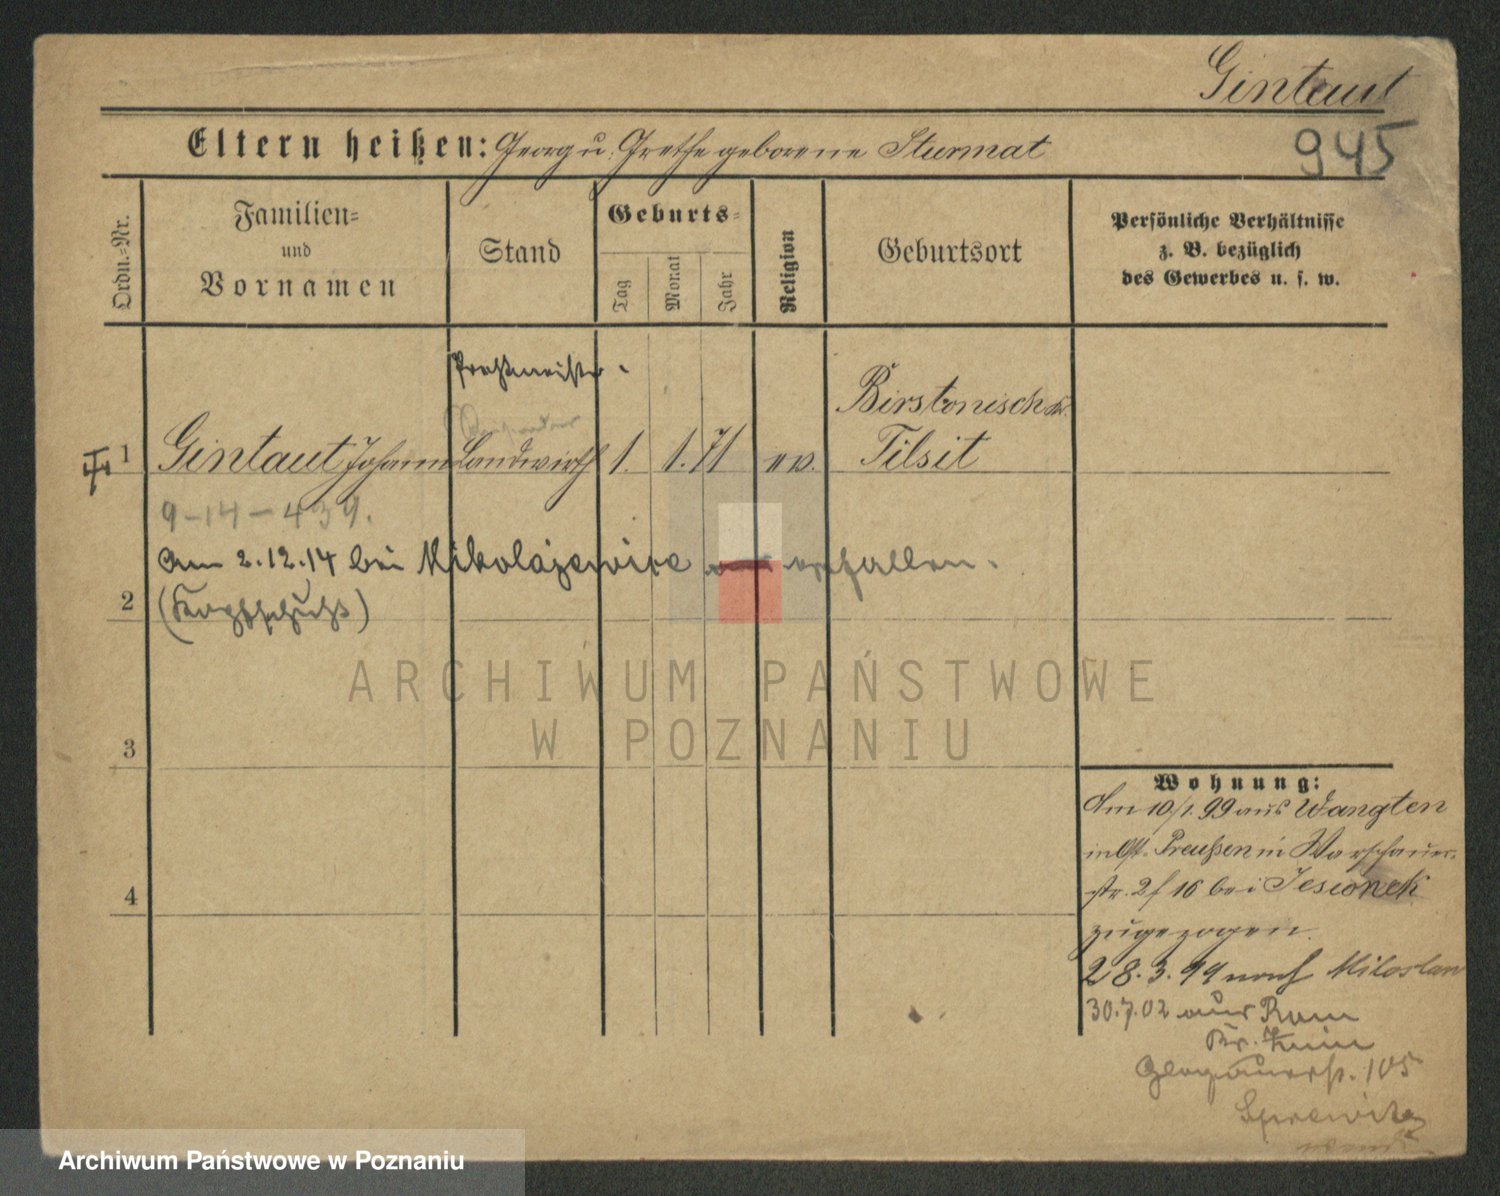 Gintaut
945
Eltern heißen: Georg u. Grethe geborene Sturmat
Ordn.-Nr.
Familien-
und
Vornamen
Stand
Geburts-
Tag
Monat
Jahr
Religion
Geburtsort
Persönliche Verhältnisse
z. B. bezüglich
des Gewerbes u. s. w.
Birstonischk.
1 Gintaut Johann Landwirth 1. 1. 71 ev. Tilsit
9-14-439.
Am 2.12.14 bei gefallen.
2 (Kopfschuß)
ARCHIWUM PAŃSTWOWE
W POZNANIU
3
Wohnung:
Am 10/1. 99 aus Wangten
in Ost-Preußen in Warschauer-
str. 2 f 16 bei Jesionek
4
zugezogen.
28.3.99 nach Miloslaw
30.7.02 aus
Glogauerstr. 105
Archiwum Państwowe w Poznaniu